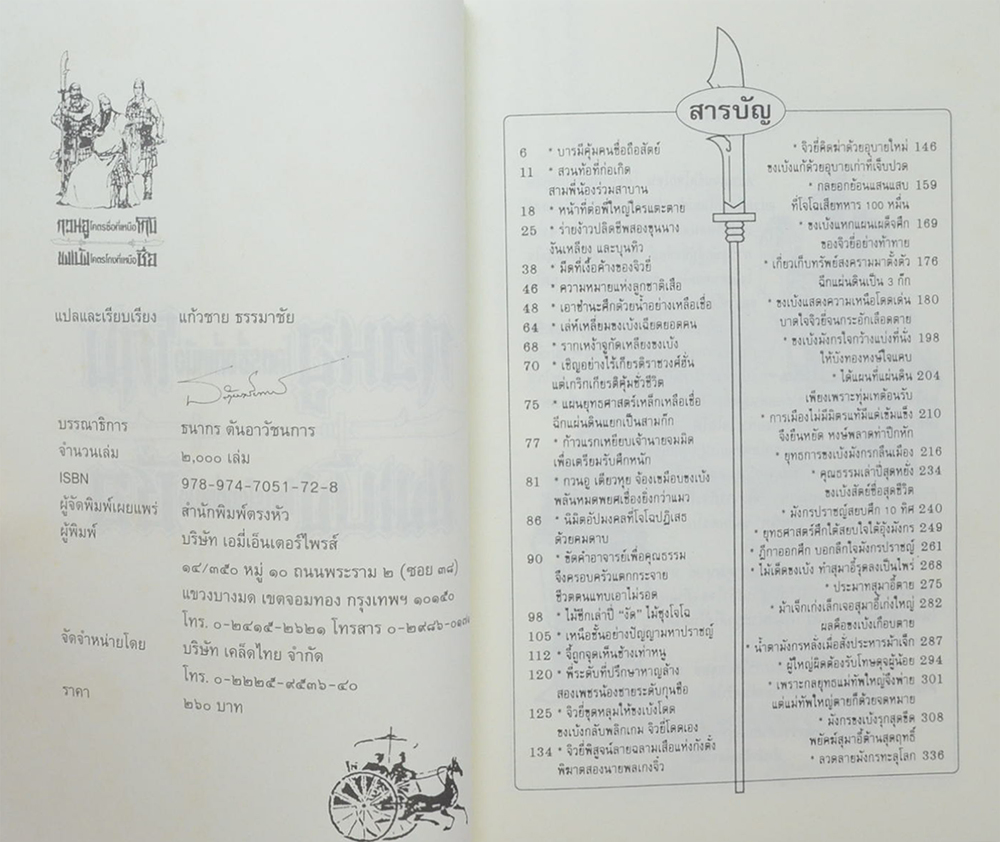 กวนอู โคตรซื่อที่เหนือ โกง
ขงเบ้ง โคตรโกงที่เหนือ ซื่อ
แปลและเรียบเรียง แก้วชาย ธรรมาชัย
บรรณาธิการ ธนากร ตันอาวัชนการ
จำนวนเล่ม ๒,๐๐๐ เล่ม
ISBN 978-974-7051-72-8
ผู้จัดพิมพ์เผยแพร่ สำนักพิมพ์ตรงหัว
ผู้พิมพ์ บริษัท เอมี่เอ็นเตอร์ไพรส์
๑๔/๓๕๐ หมู่ ๑๐ ถนนพระราม ๒ (ซอย ๓๘)
แขวงบางมด เขตจอมทอง กรุงเทพฯ ๑๐๑๕๐
โทร. ๐-๒๔๑๕-๒๖๒๑ โทรสาร ๐-๒๙๘๖-
จัดจำหน่ายโดย บริษัท เคล็ดไทย จำกัด
โทร. ๐-๒๒๒๕-๙๕๓๖-๔๐
ราคา ๒๖๐ บาท
สารบัญ
6 * บารมีคุ้มคนซื่อถือสัตย์
11 * สวนท้อที่ก่อเกิด
สามพี่น้องร่วมสาบาน
18 * หน้าที่ต่อพี่ใหญ่ใครแตะตาย
25 * ร่ายง้าวปลิดชีพสองขุนนาง
งันเหลียง และบุนทิว
38 * มีดที่เงื้อค้างของจิวยี่
46 * ความหมายแห่งลูกชาติเสือ
48 * เอาชำนะศึกด้วยน้ำอย่างเหลือเชื่อ
64 * เล่ห์เหลี่ยมขงเบ้งเฉียดยอดคน
68 * รากเหง้าจูกัดเหลียงขงเบ้ง
70 * เชิญอย่างไร้เกียรติราชวงศ์ฮั่น
แต่เกริกเกียรติคุ้มชั่วชีวิต
75 * แผนยุทธศาสตร์เหล็กเหลือเชื่อ
ฉีกแผ่นดินแยกเป็นสามก๊ก
77 * ก้าวแรกเหยียบเจ้านายจมมิด
เพื่อเตรียมรับศึกหนัก
81 * กวนอู เตียวหุย จ้องเขม็อบขงเบ้ง
พลันหมดพยศเชื่องยิ่งกว่าแมว
86 * นิมิตอัปมงคลที่โจโฉปฏิเสธ
ด้วยคมดาบ
90 * ขัดคำอาจารย์เพื่อคุณธรรม
จึงครอบครัวแตกกระจาย
ชีวิตตนแทบเอาไม่รอด
98 * ไม้ซีกเล่าปี่ "งัด" ไม้ซุงโจโฉ
105 * เหนือชั้นอย่างปัญญามหาปราชญ์
112 * จี้ถูกจุดเห็นช้างเท่าหนู
120 * พี่ระดับที่ปรึกษาหาญล้าง
สองเพชรน้องชายระดับกุนซือ
125 * จิวยี่ขุดหลุมให้ขงเบ้งโดด
ขงเบ้งกลับพลิกเกม จิวยี่โดดเอง
134 * จิวยี่พิสูจน์ลายฉลามเสือแห่งกังตั๋ง
พิฆาตสองนายพลเกงจิ๋ว
* จิวยี่คิดฆ่าด้วยอุบายใหม่ 146
ขงเบ้งแก้ด้วยอุบายเก่าที่เจ็บปวด
* กลยอกย้อนแสนแสบ 159
ที่โจโฉเสียทหาร 100 หมื่น
* ขงเบ้งแหกแผนเผด็จศึก 169
ของจิวยี่อย่างท้าทาย
* เกี่ยวเก็บทรัพย์สงครามมาตั้งตัว 176
ฉีกแผ่นดินเป็น 3 ก๊ก
* ขงเบ้งแสดงความเหนือโดดเด่น 180
บาดใจจิวยี่จนกระอักเลือดตาย
* ขงเบ้งมังกรใจกว้างแบ่งที่นั่ง 198
ให้บังทองหงษ์ใจแคบ
* ได้แผนที่แผ่นดิน 204
เพียงเพราะทุ่มเทต้อนรับ
* การเมืองไม่มีมิตรแท้มีแต่เข้มแข็ง 210
จึงยืนหยัด หงษ์พลาดท่าปีกหัก
* ยุทธการขงเบ้งมังกรกลืนเมือง 216
* คุณธรรมเล่าปี่สุดหยั่ง 234
ขงเบ้งสัตย์ซื่อสุดชีวิต
* มังกรปราชญ์สยบศึก 10 ทิศ 240
* ยุทธศาสตร์ศึกใต้สยบใจได้อุ้งมังกร 249
* ฎีกาออกศึก บอกลึกใจมังกรปราชญ์ 261
* ไม้เด็ดขงเบ้ง ทำสุมาอี้รุดลงเป็นไพร่ 268
* ประมาทสุมาอี้ตาย 275
* ม้าเจ๊กเก่งเล็กเจอสุมาอี้เก่งใหญ่ 282
ผลคือขงเบ้งเกือบตาย
* น้ำตามังกรหลั่งเมื่อสั่งประหารม้าเจ๊ก 287
* ผู้ใหญ่ผิดต้องรับโทษดุจผู้น้อย 294
* เพราะกลยุทธแม่ทัพใหญ่จึงพ่าย 301
แต่แม่ทัพใหญ่ตายก็ด้วยจดหมาย
* มังกรขงเบ้งรุกสุดขีด 308
พยัคฆ์สุมาอี้ต้านสุดฤทธิ์
* ลวดลายมังกรทะลุโลก 336